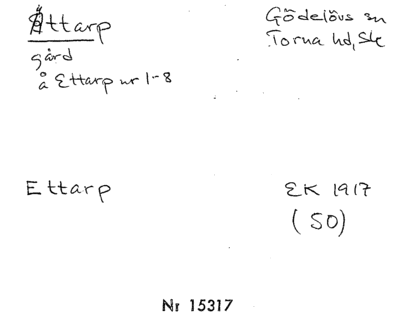 Åttarp
Gödelövs sn
Torna hd, Sk
gård
å Ettarp nr 1-8
Ettarp
EK 1917
(SO)
Nr 15317